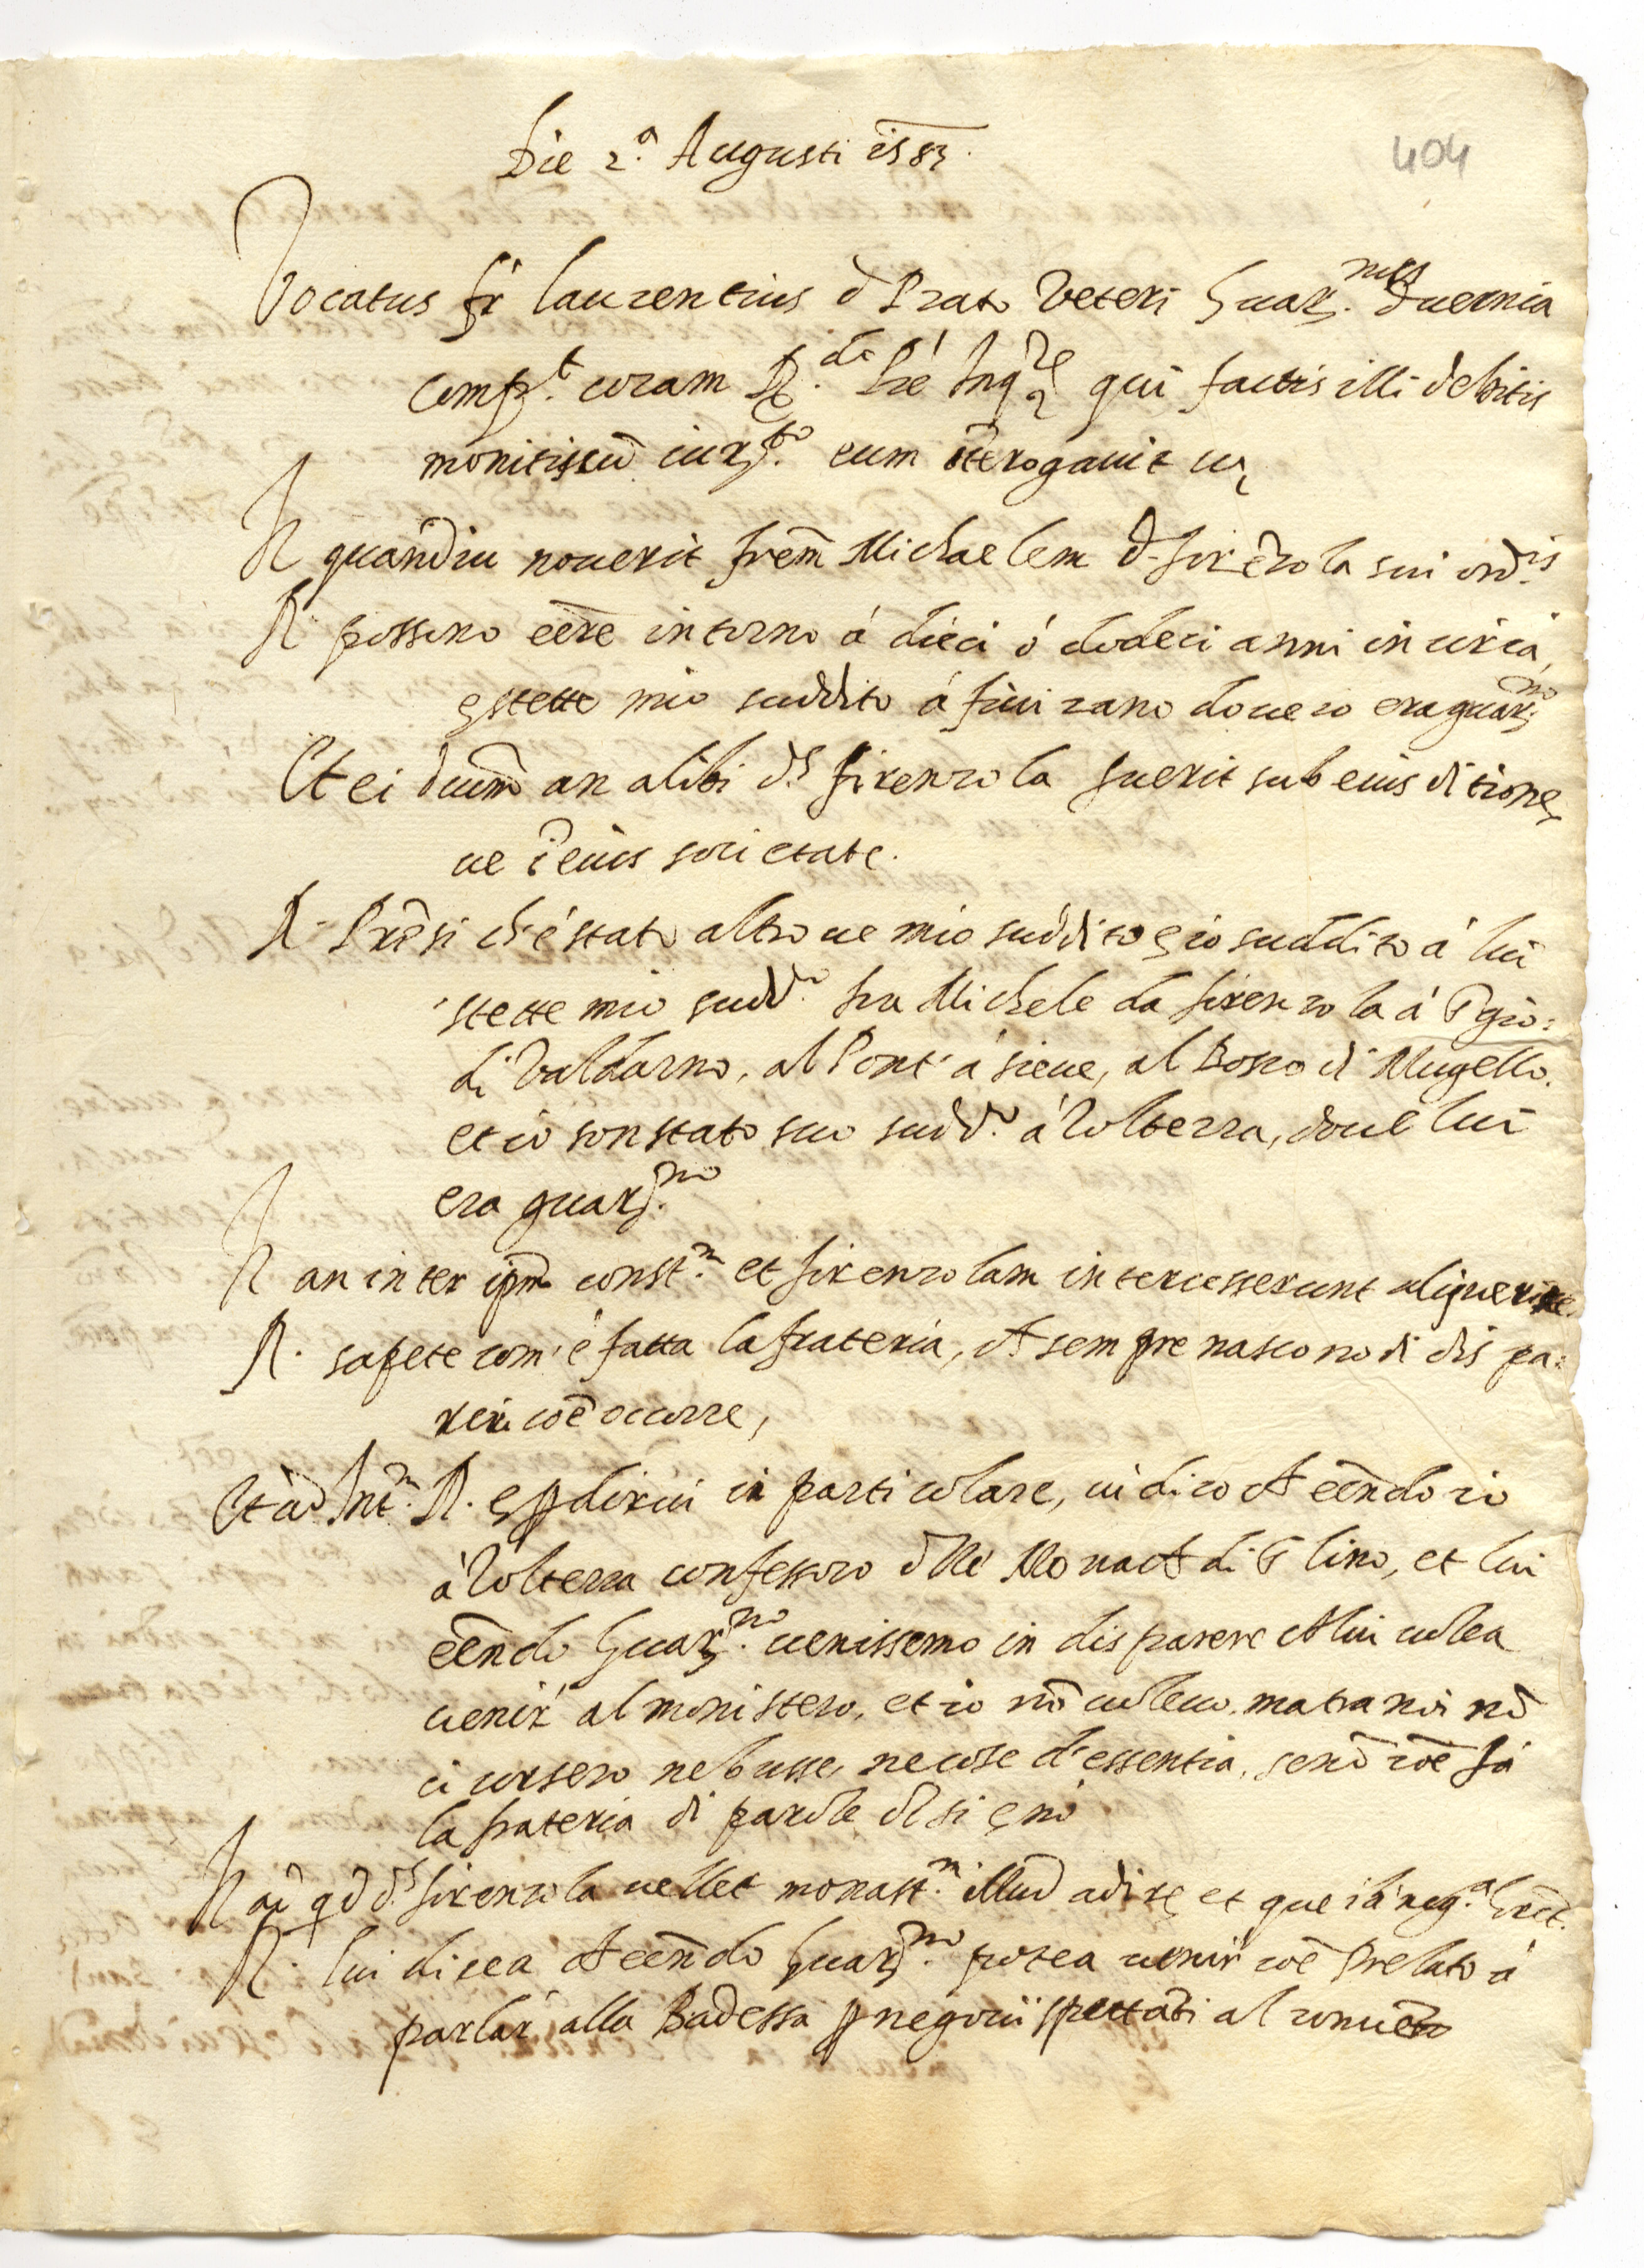 Die 2.ª Augusti 1583.
404
Vocatus fr laurentius d Prato Veteri Guar.nus Auernia
comp.t coram R.do Pre Inq.re qui factis illi debitis
monitis cũ iur.to eum ĩterogauit
In quandiu nouerit frem Michaelem d firẽzola sui ord.is
R. possono eẽre intorno á dieci ó dodeci anni in circa,
e stette mio suddito á fiuizano douero era guar.no
Et ei dictum an alibi d.s firenzola fuerit sub eius ditione
ue ĩ eius societate.
R. Pre si ch'é stato altroue mio suddito e io suddito á lui
stette mio sudd.o fra Michele da firenzola á S gio:
di Valdarno, al Pont' á sieue, al Bosco di Mugello.
et io son stato suo sudd.o á Volterra, doue lui
era guar.no
In an inter ipm const.m et firenzolam intercesserunt alique rixe.
R. sapete com' é fatta la frateria, ch sempre nascono di dis pa:
reri coẽ occorre,
Et ad Int.m R. e p dirui in particolare, ui dico ch eẽndo io
á Volterra confessoro dlle Monach di S lino, et lui
eẽndo Guar.no uenissemo in disparere ch lui uolea
uenir' al monistero, et io nõ uoleuo. ma tra noi nõ
ci corsero ne busse, ne cose d'essentia, senõ coẽ fá
la frateria di parole di si e nó
In ad qd d.s firenzola uellet monast.m illud adire, et que ibi neg.a hret.
R. lui dicea ch eẽndo Guar.no potea uenir coẽ Prelato á
parlar' alla Badessa p negocii spettãti al conuẽto